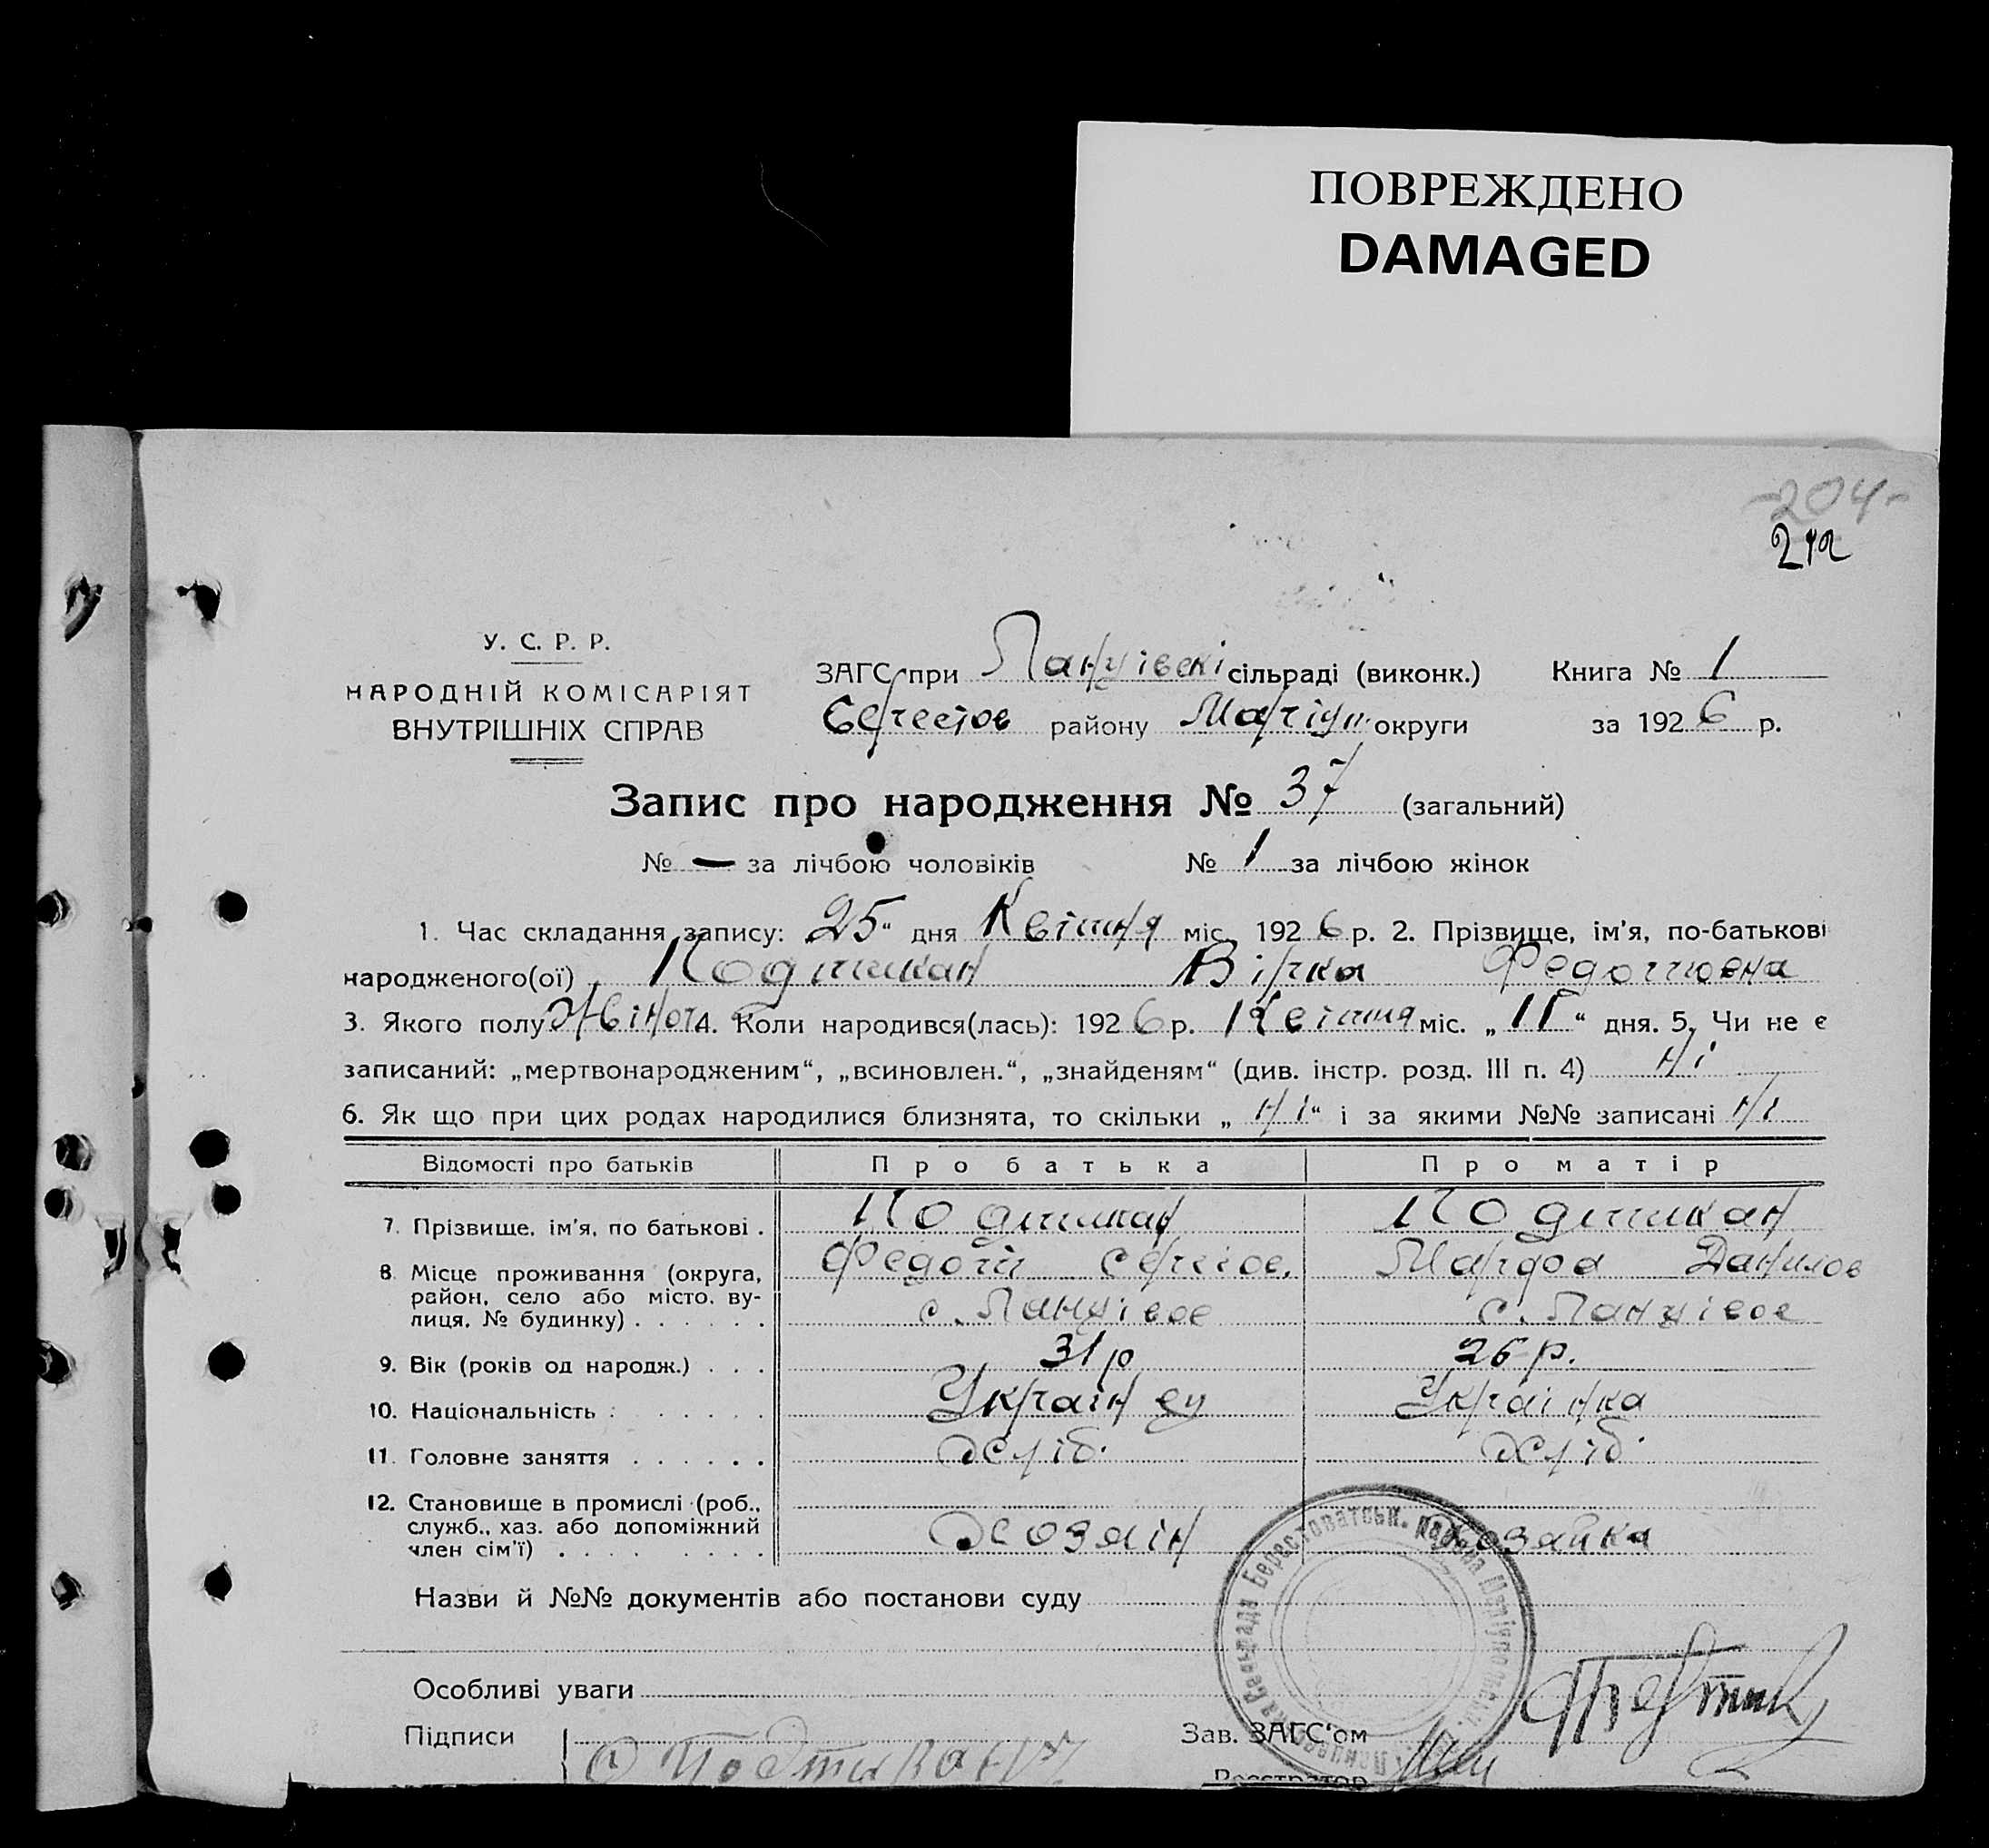 ПОВРЕЖДЕНО
DAMAGED
-204-
У. С. Р. Р.
НАРОДНІЙ КОМІСАРІЯТ
ВНУТРІШНІХ СПРАВ
ЗАГС при Ланцівскі сільраді (виконк.) Книга № 1
Берестов району Маріуп. округи за 1926 р.
Запис про народження № 37 (загальний)
№ — за лічбою чоловіків № 1 за лічбою жінок
1. Час складання запису: 25" дня Квітня міс. 1926 р. 2. Прізвище, ім'я, по-батькові
народженого(ої) Подтикан Вірка Федотовна
3. Якого полу Жіноч 4. Коли народився(лась): 1926 р. Квітня міс. „ " дня. 5. Чи не є
записаний: „мертвонародженим“, „всиновлен.“, „знайденям“ (див. інстр. розд. III п. 4) Ні
6. Як що при цих родах народилися близнята, то скільки „ Ні “ і за якими №№ записані Ні
Відомості про батьків Про батька Про матір
7. Прізвище, ім'я, по батькові . Подтикан Подтикан
8. Місце проживання (округа, район, село або місто, ву-лиця, № будинку) . . . . . . Федот Сергієв. Марфа Данилов
с. Ланцівов с. Ланцівов
9. Вік (років од народж.) . . . 31 р 26 р.
10. Національність : . . . . . . Українец Українка
11. Головне заняття . . . . . . Хліб. Хліб.
12. Становище в промислі (роб.,
служб., хаз. або допоміжний
член сім'ї) . . . . . . . . Хозяін Хозайка
Назви й №№ документів або постанови суду
Особливі уваги
Підписи Подтыкан Зав. ЗАГС'ом
Реєстратор
Сельрада Берестоватськ. района Маріупольськ.